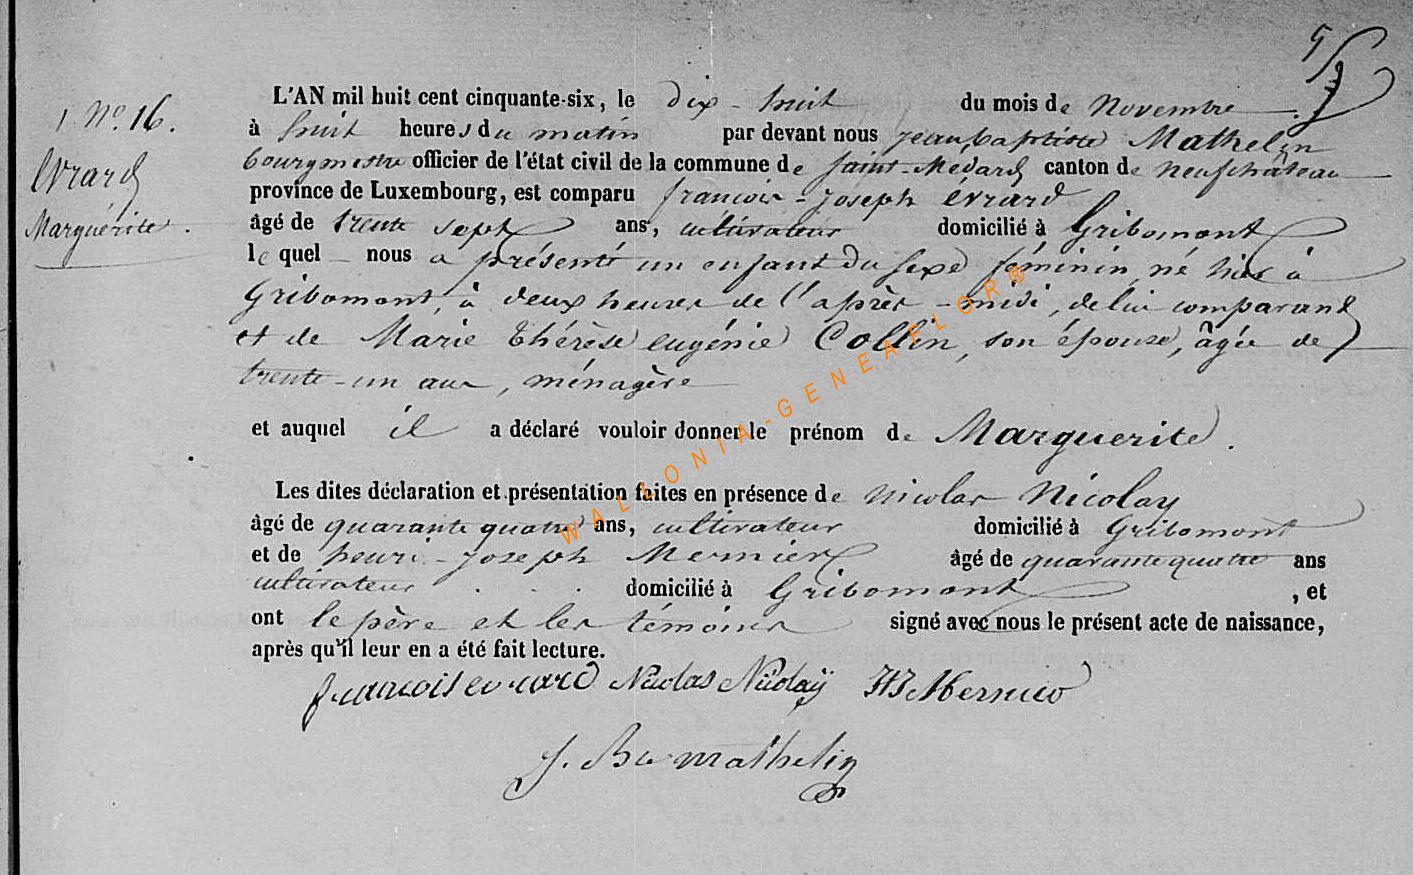 5/9
1 N° 16.
Evrard
Marguérite.
L'AN mil huit cent cinquante-six, le dix-huit du mois de Novembre
à huit heures du matin par devant nous jean, baptiste Mathelin
bourgmestre officier de l'état civil de la commune de Saint-Médard canton de neufchâteau
province de Luxembourg, est comparu françois-joseph évrard
âgé de trente sept ans, cultivateur domicilié à Gribomont
le quel nous a présenté un enfant du sexe féminin, né hier à
Gribomont, à deux heures de l'après-midi, de lui comparant
et de Marie thérèse eugénie Collin, son épouse, âgée de
trente-un ans, ménagère
et auquel il a déclaré vouloir donner le prénom de Marguerite.
Les dites déclaration et présentation faites en présence de nicolas Nicolay
âgé de quarante quatre ans, cultivateur domicilié à Gribomont
et de henri-Joseph Mernier âgé de quarante quatre ans
cultivateur domicilié à Gribomont, et
ont le père et les témoins signé avec nous le présent acte de naissance,
après qu'il leur en a été fait lecture.
françois evrard Nicolas Nicolaÿ HJ Mernier
J. Bte mathelin
WALLONIA-GENEAFLOR®